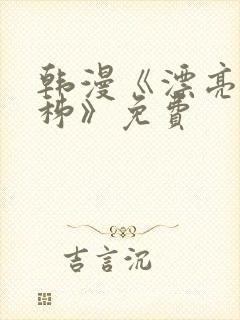 韩漫《漂亮
柳》免費
吉言沉